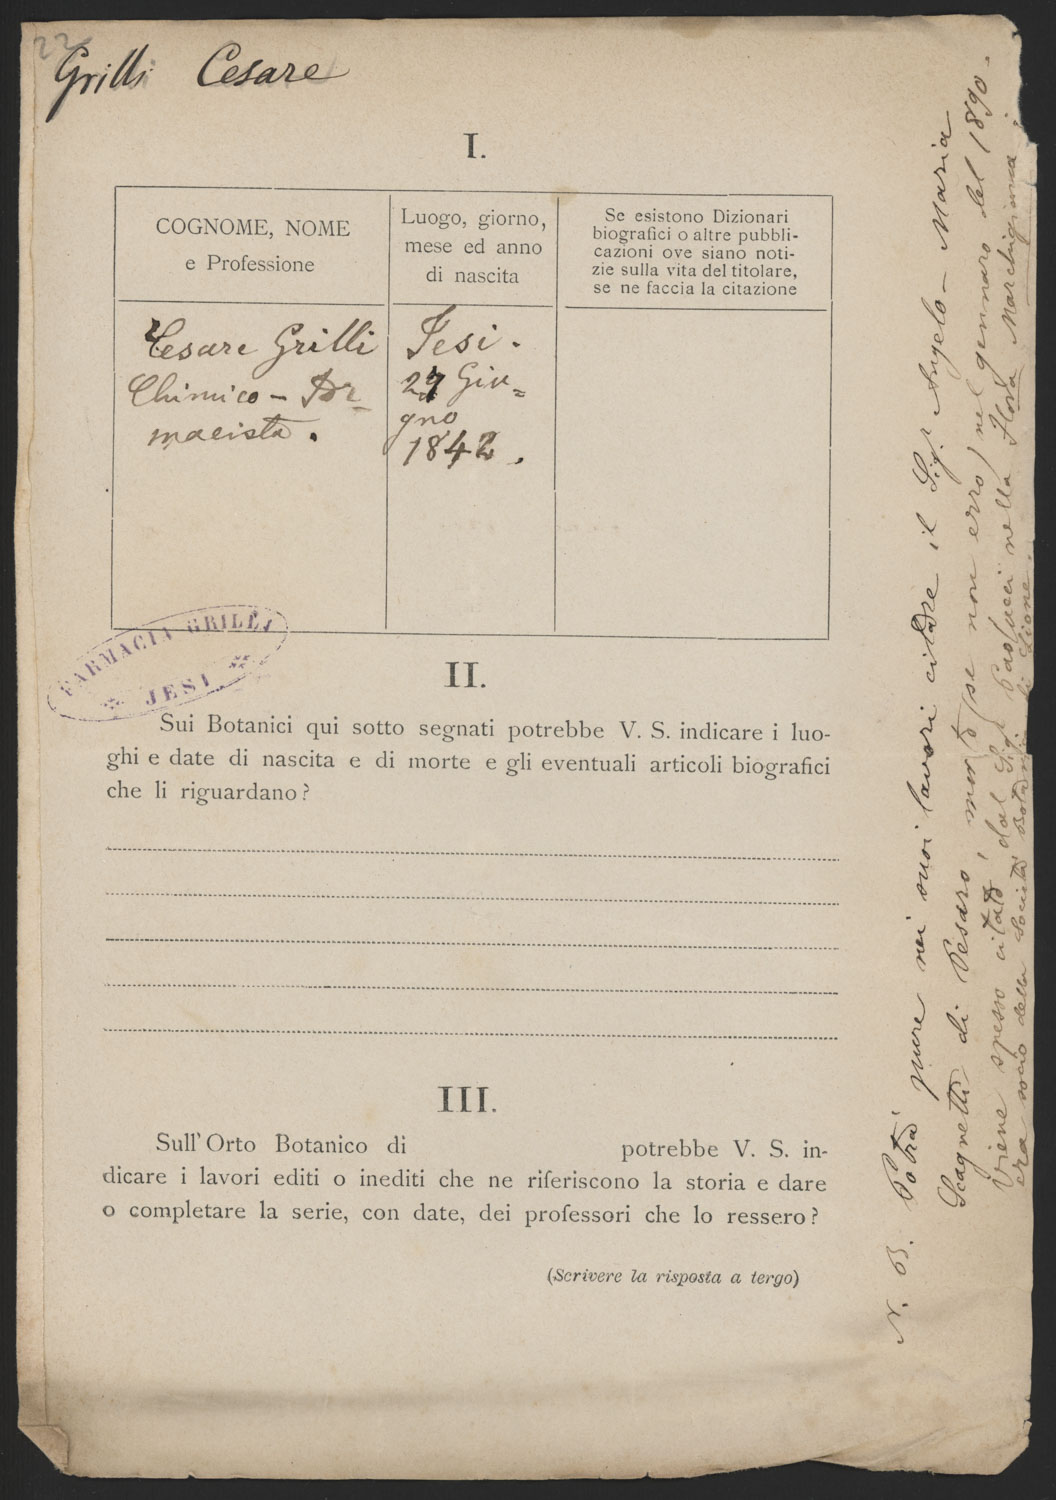 22
Grilli Cesare
I.
COGNOME, NOME
e Professione
Luogo, giorno,
mese ed anno
di nascita
Se esistono Dizionari
biografici o altre pubbli-
cazioni ove siano noti-
zie sulla vita del titolare,
se ne faccia la citazione
Cesare Grilli
Chimico -
macista.
Jesi.
27 Giu=
gno
1842.
FARMACIA GRILLI
JESI
II.
Sui Botanici qui sotto segnati potrebbe V. S. indicare i luo-
ghi e date di nascita e di morte e gli eventuali articoli biografici
che li riguardano?
III.
Sull'Orto Botanico di potrebbe V. S. in-
dicare i lavori editi o inediti che ne riferiscono la storia e dare
o completare la serie, con date, dei professori che lo ressero?
(Scrivere la risposta a tergo)
N. B. Potrà pure nei suoi lavori citare il Sig.r Angelo-Maria
Scagnetti di Pesaro, morto (se non erro) nel gennaro del 1890.
Viene spesso citato dal Sig.r Paolucci nella Flora Marchigiana;
era socio della Società Botanica di Lione.